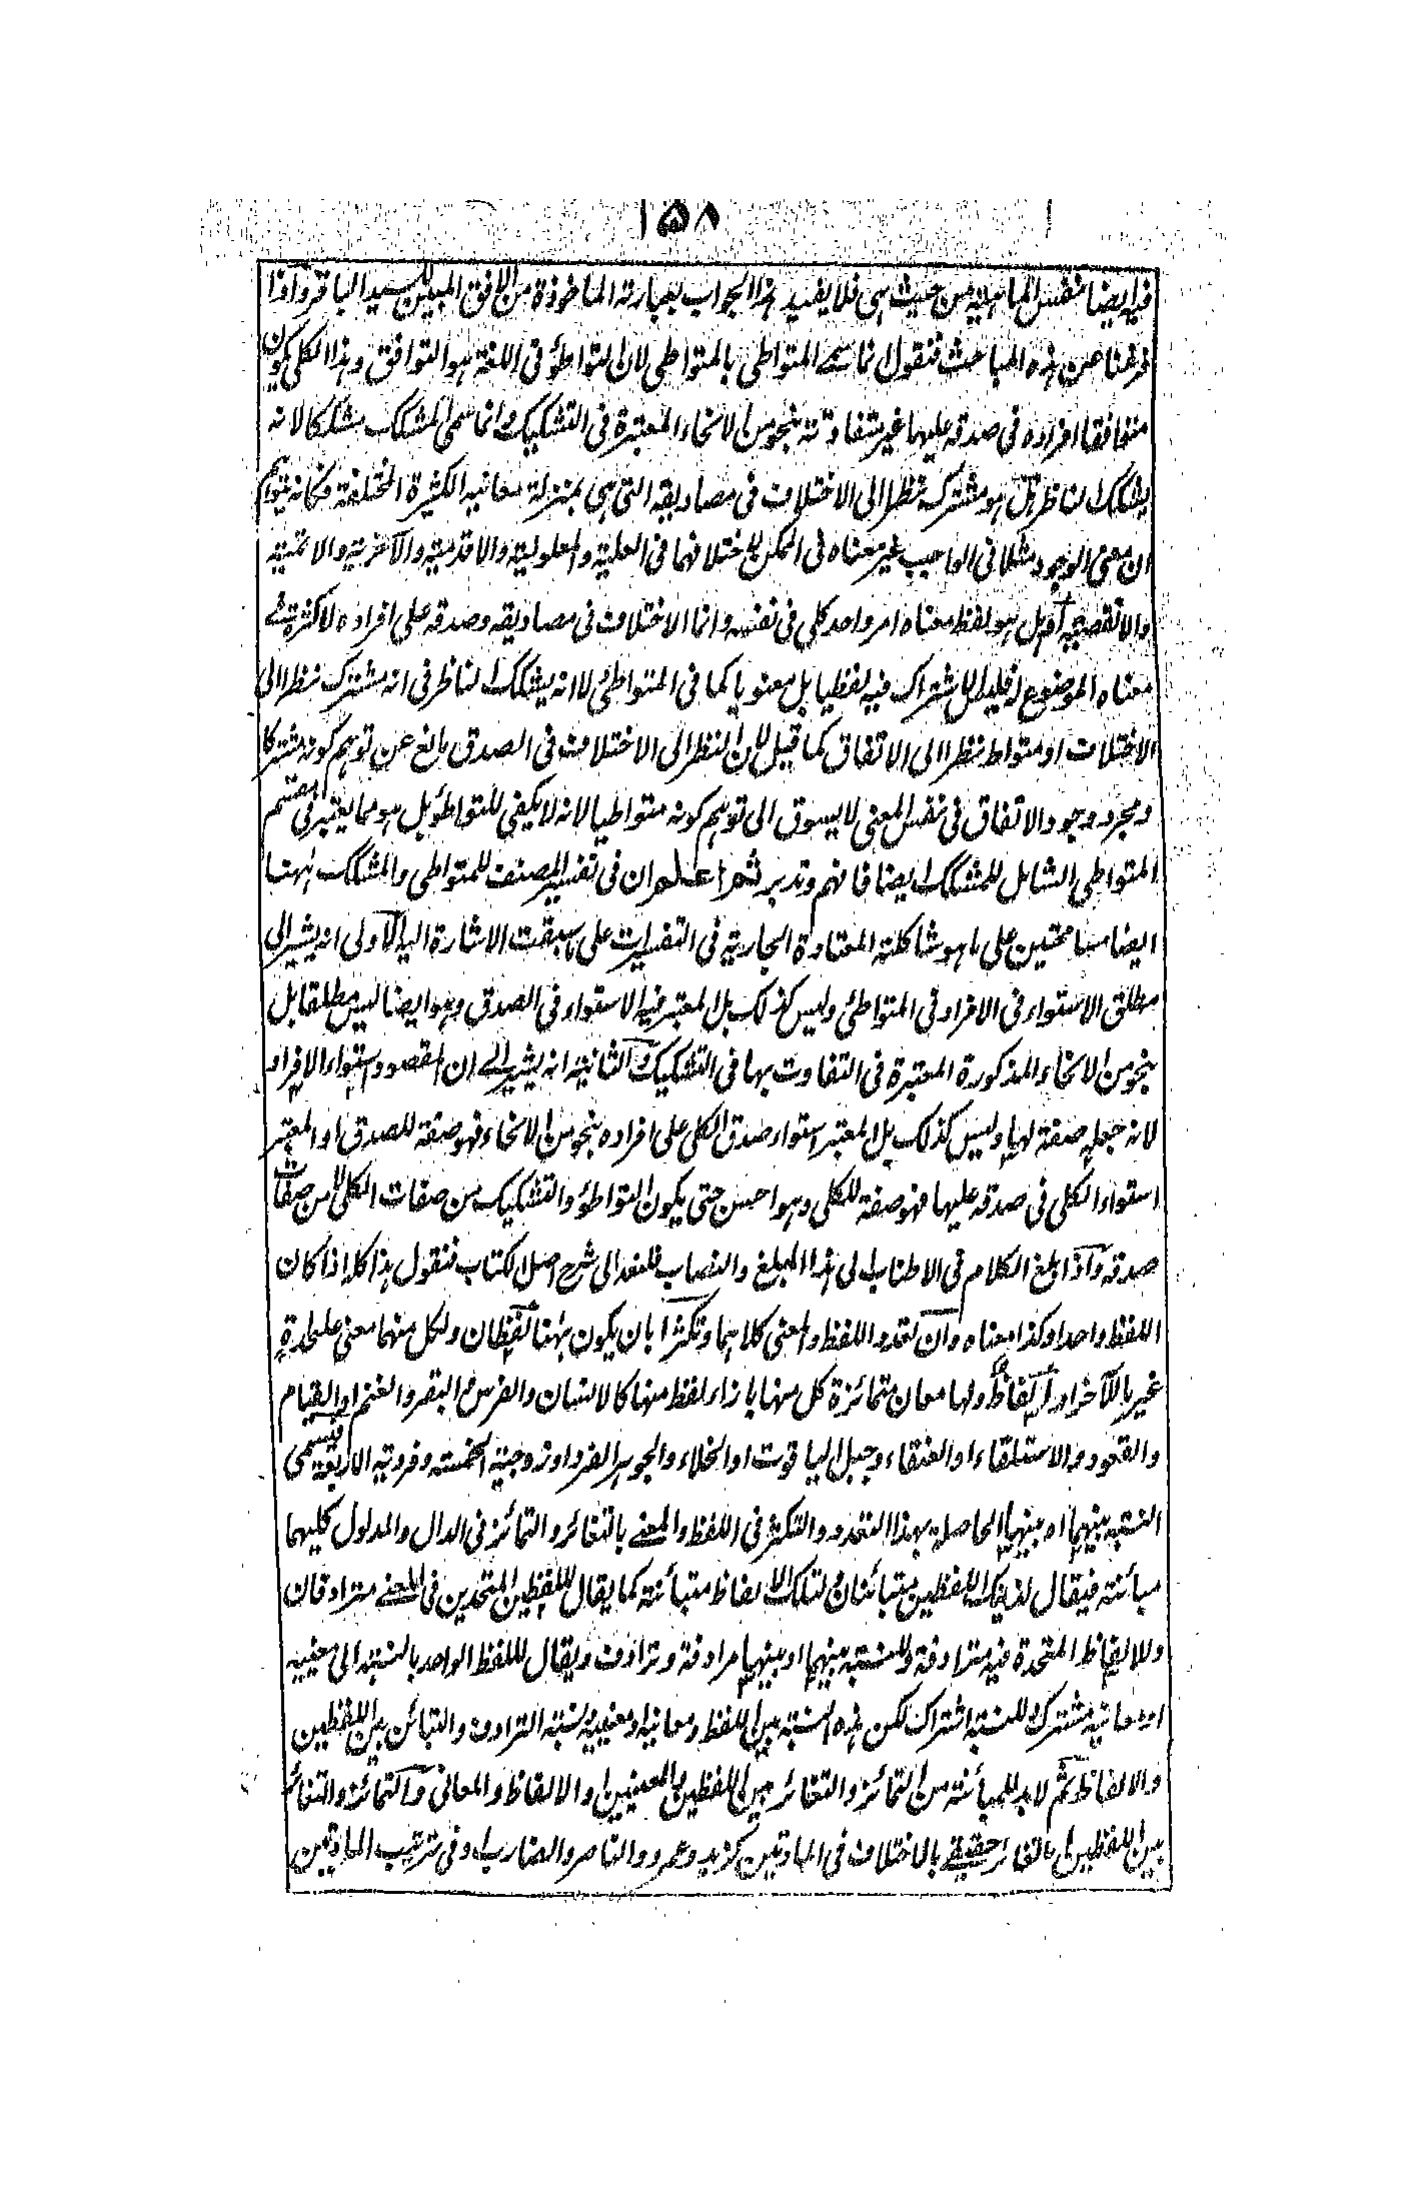 ١٥٨
فيه ايضا نفس الماهية من حيث هي فلا يفيد هذا الجواب بعبارته الماخوذة من الافق المبين للسيد الباقر واذا
فرغنا عن هذه المباحث فنقول انما سمي المتواطي بالمتواطي لان التواطؤ في اللغة هو التوافق وهذا الكلي يكون
متوافقا افراده في صدقه عليها غير متفاوتة بنحو من الانحاء المعتبرة في التشكيك وانما سمي المشكك مشككا لانه
يشكك الناظر هل هو مشترك نظرا الى الاختلاف في مصاديقه التي هي بمنزلة معانيه الكثيرة المختلفة فكانه يتوهم
ان معنى الوجود مثلا في الواجب غير معناه في الممكن لاختلافهما في العلية والمعلولية والاقدمية والآخرية والاتمية
والانقصية ام هل هو لفظ معناه امر واحد كلي في نفسه وانما الاختلاف في مصاديقه وصدقه على افراده لا كثرة في
معناه الموضوع له فليس الاشتراك فيه لفظيا بل معنويا كما في المتواطئ لا انه يشكك الناظر في انه مشترك نظرا الى
الاختلاف او متواط نظرا الى الاتفاق كما قيل لان النظر الى الاختلاف في الصدق مانع عن توهم كونه مشتركا
ومجرد وجود الاتفاق في نفس المعنى لا يسوق الى توهم كونه متواطيا لانه لا يكفي للتواطؤ بل هو مما يعتبر في المقسم
المتواطي الشامل للمشكك ايضا فافهم وتدبر ثم اعلم ان في تفسير المصنف للمتواطي والمشكك ههنا
ايضا مسامحتين على ما هو شاكلته المعتادة الجارية في التفسيرات على ما سبقت الاشارة اليه الاولى انه يشير الى
مطلق الاستواء في الافراد في المتواطئ وليس كذلك بل المعتبر فيه الاستواء في الصدق وهو ايضا ليس مطلقا بل
بنحو من الانحاء المذكورة المعتبرة في التفاوت بها في التشكيك والثانية انه يشير الى ان المقصود استواء الافراد
لانه جعله صفة لها وليس كذلك بل المعتبر استواء صدق الكلي على افراده بنحو من الانحاء فهو صفة للصدق او المعتبر
استواء الكلي في صدقه عليها فهو صفة للكلي وهو احسن حتى يكون التواطؤ والتشكيك من صفات الكلي لا من صفات
صدقه واذا بلغ الكلام في الاطناب الى هذا المبلغ والنصاب فلنعد الى شرح اصل الكتاب فنقول هذا كله اذا كان
اللفظ واحدا وكذا معناه وان تعدد اللفظ والمعنى كلاهما وتكثرا بان يكون ههنا لفظان ولكل منهما معنى عليحدة
غير ما للآخر او الفاظ ولها معان متمائزة كل منها بازاء لفظ منها كالانسان والفرس والبقر والغنم او القيام
والقعود والاستلقاء او العنقاء وجبل الياقوت او الخلاء والجوهر الفرد او زوجية الخمسة وفردية الاربعة فيسمى
النسبة بينهما اه بينها الحاصلة بهذا التعدد والتكثر في اللفظ والمعنى بالتغائر والتمائز في الدال والمدلول كليهما
مبائنة فيقال لذينك اللفظين متبائنان ولتلك الالفاظ متبائنة كما يقال للفظين المتحدين في المعنى مترادفان
وللالفاظ المتحدة فيه مترادفة وللنسبة بينهما او بينها مرادفة وترادف ويقال للفظ الواحد بالنسبة الى معنييه
او معانيه مشترك وللنسبة اشتراك لكن هذه النسبة بين اللفظ ومعانيه او معنييه ونسبة الترادف والتبائن بين اللفظين
والالفاظ ثم لا بد للمبائنة من التمائز والتغائر بين اللفظين والمعنيين او الالفاظ والمعاني والتمائز والتغائر
بين اللفظين اما تغائر حقيقي بالاختلاف في المادتين كزيد وعمرو والناصر والضارب او في ترتيب المادتين